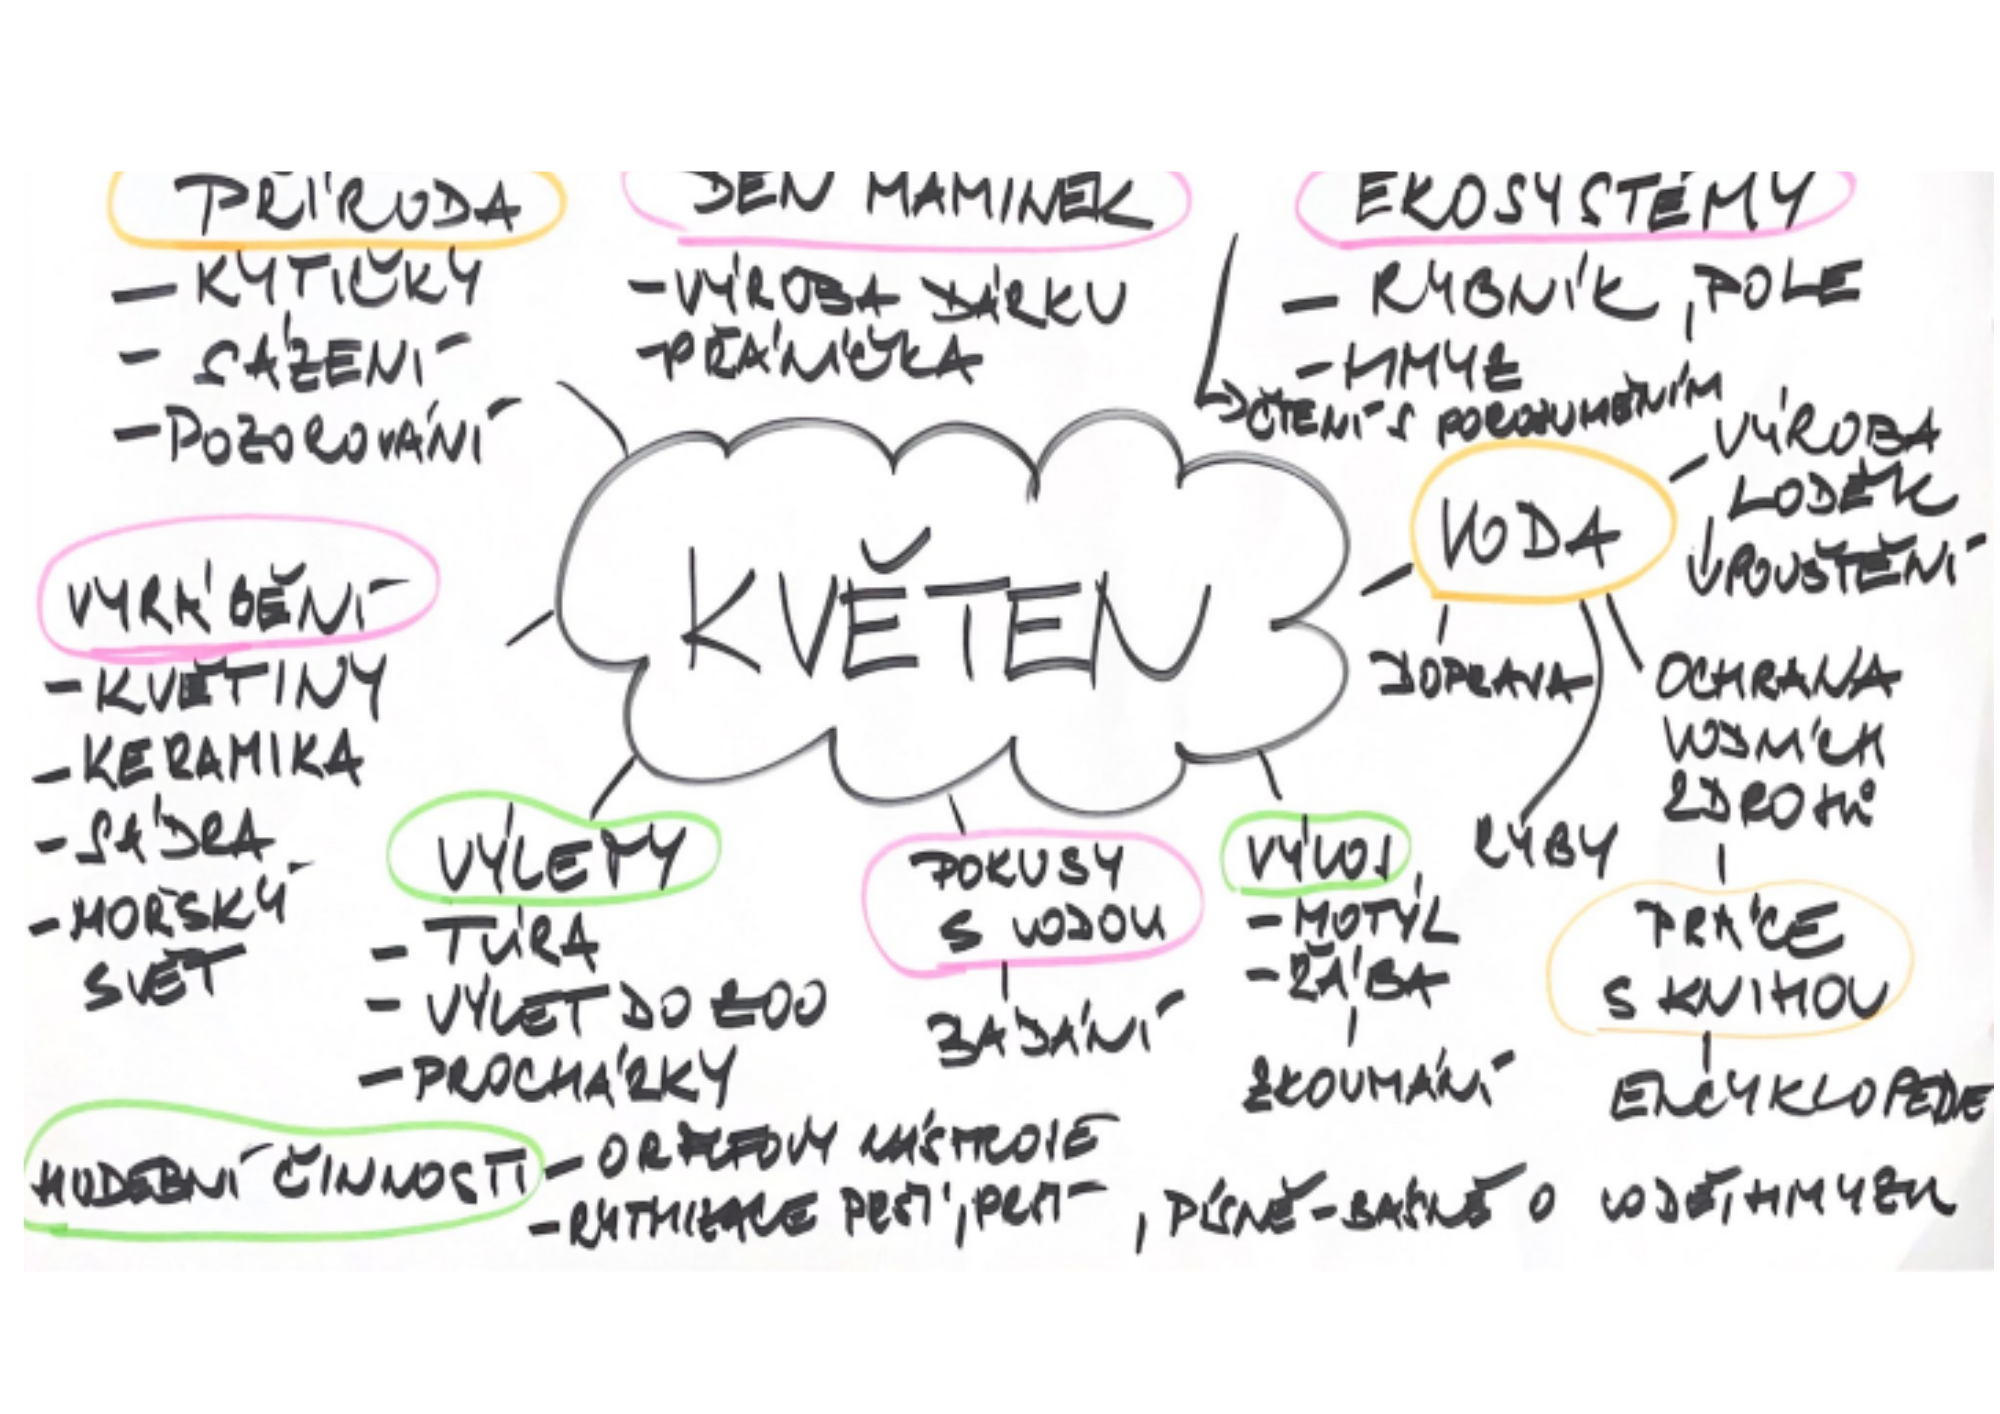 PŘÍRODA
- KYTIČKY
- SÁZENÍ
- POZOROVÁNÍ
DEN MAMINEK
- VÝROBA DÁRKU
- PŘÁNÍČKA
EKOSYSTÉMY
- RYBNÍK, POLE
- HMYZ
ČTENÍ S POROZUMĚNÍM
KVĚTEN
VODA
VÝROBA
LODĚK
POUŠTĚNÍ
DOPRAVA
RYBY
OCHRANA
VODNÍCH
ZDROJŮ
PRÁCE
S KNIHOU
ENCYKLOPEDIE
VYRÁBĚNÍ
- KVĚTINY
- KERAMIKA
- SÁDRA
- MOŘSKÝ
SVĚT
VÝLETY
- TÚRA
- VÝLET DO ZOO
- PROCHÁZKY
POKUSY
S VODOU
BÁDÁNÍ
VÝVOJ
- MOTÝL
- ŽÁBA
ZKOUMÁNÍ
HUDEBNÍ ČINNOSTI
- ORFFOVY NÁSTROJE
- RYTMIZACE , PÍSNĚ - BÁSNĚ O VODĚ, HMYZU